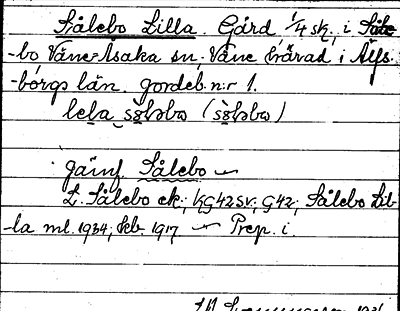 Sålebo Lilla. Gård 1/4 sk. i Såle-
-bo, Väne-Åsaka sn, Väne härad i Älfs-
-borgs län. Jordeb. n:r 1.
lela sɔ̀ləbo (sɔ̀ləbo)
Jämf. Sålebo
L. Sålebo ek.; KG42SV; G42; Sålebo Lil-
-la ml. 1934; kb. 1917 — Prep. i.